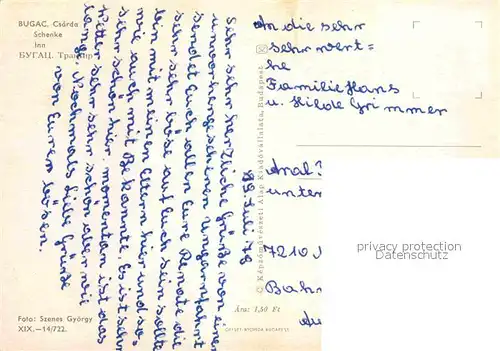 BUGAC, Csárda
Schenke
Inn
БУГАЦ. Трактир
Sehr sehr herzliche Grüße von einer
unvorhergesehenen Ungarnfahrt
sendet Euch allen Eure Renate die
sehr sehr böse auf Euch sein sollte
bin mit meinen Eltern hier und so=
wie auch mit Bekannte. Es ist sehr
sehr schön hier. momentan ist das
Wetter sehr sehr schön aber wie
lange. Nochmals Liebe Grüße
von Euren bösen.
29. Juli 78
An die sehr
sehr wert=
he
Familie Hans
u. Hilde Grimmer
unter
7210
Bahn
privacy protection
Datenschutz
© Képzőművészeti Alap Kiadóvállalata, Budapest
Ára: 1,50 Ft
OFFSET NYOMDA BUDAPEST
Foto: Szenes György
XIX.—14/722.